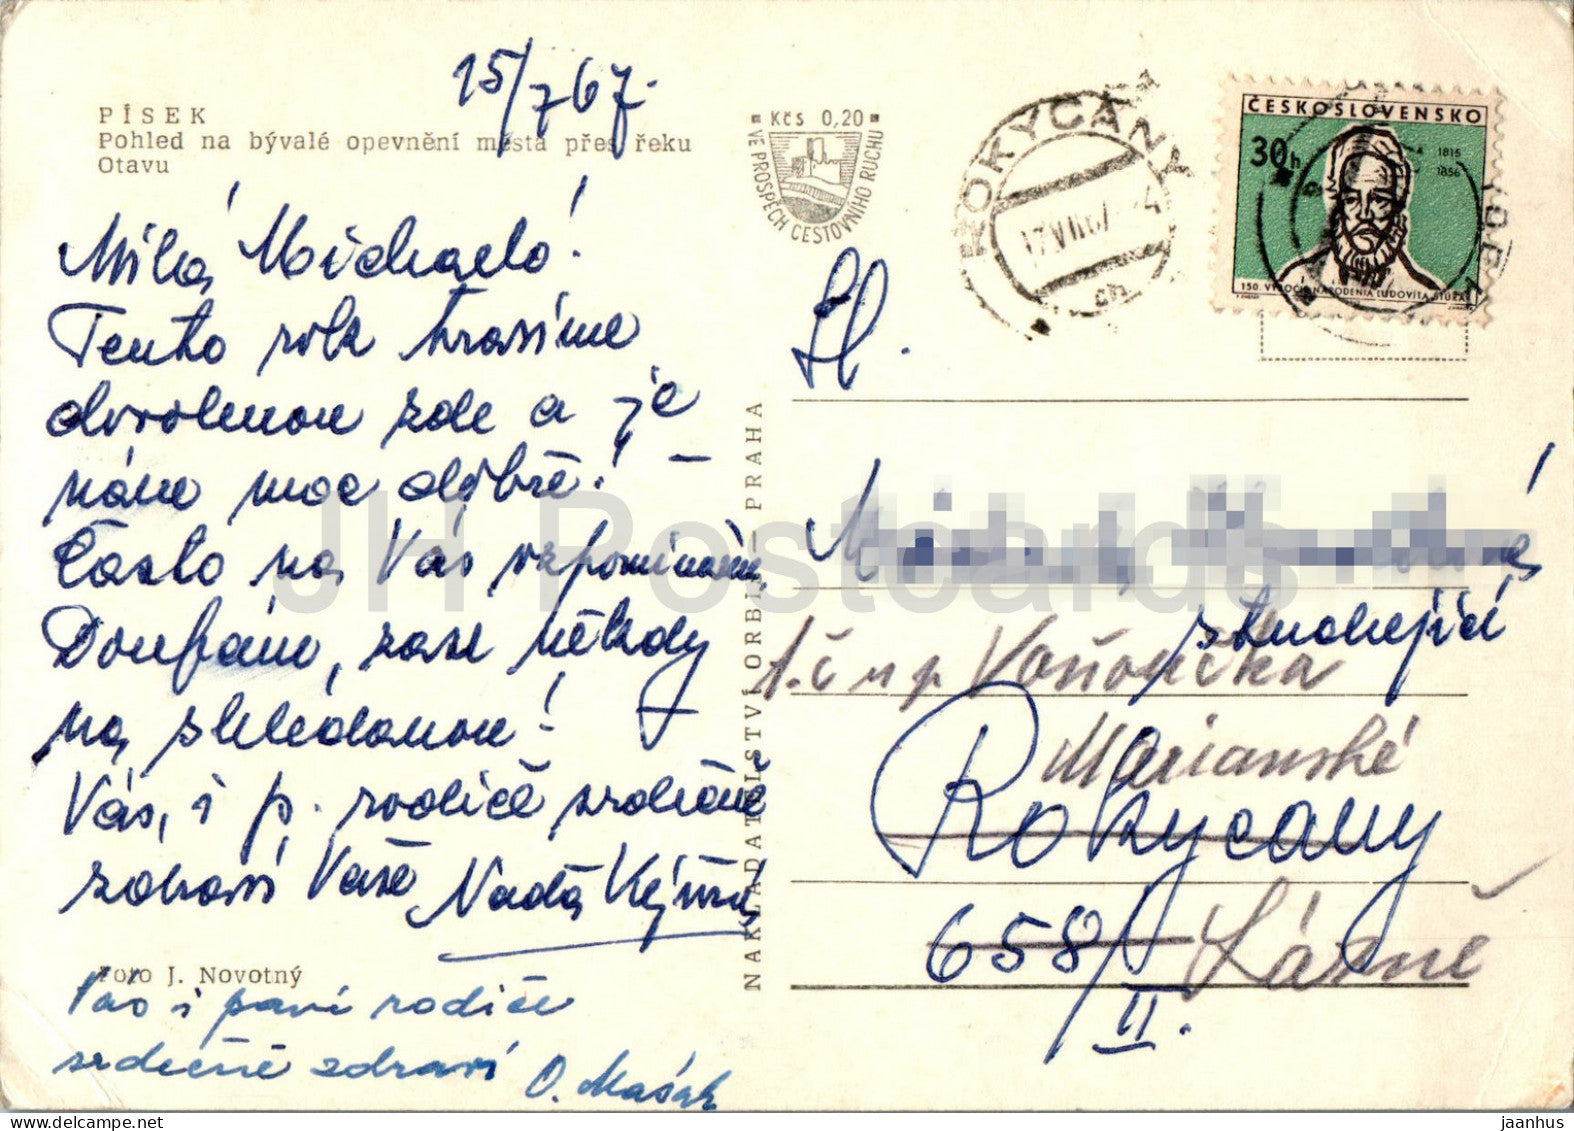 15/7 67.
PÍSEK
Pohled na bývalé opevnění města přes řeku
Otavu
Milá Michaelo!
Tento rok trávíme
dovolenou zde a je
nám moc dobře! –
Často na Vás vzpomínám.
Doufám, zase někdy
na shledanou!
Vás, i p. rodiče srdečně
zdraví Vaše Naďa
Foto J. Novotný
Vás i paní rodiče
srdečně zdraví O. Mašek
Kčs 0,20
VE PROSPĚCH CESTOVNÍHO RUCHU
NAKLADATELSTVÍ ORBIS – PRAHA
ROKYCANY
ČESKOSLOVENSKO
30h
1815
1856
150. VÝROČIE NARODENIA ĽUDOVÍTA ŠTÚRA
Sl.
studující
t.č. u p.
Rokycany
Marianské
658/II.
Lázně
JH Postcards
jaanhus